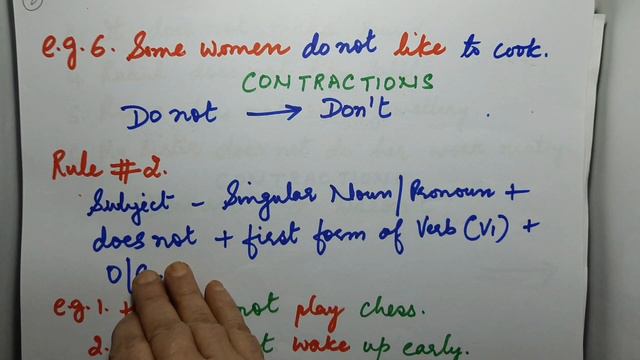 e.g. 6. Some women do not like to cook.
CONTRACTIONS
Do not → Don't
Rule # 2.
Subject - Singular Noun/Pronoun +
does not + first form of Verb (V1) +
O/
e.g. 1. not play chess.
2. wake up early.